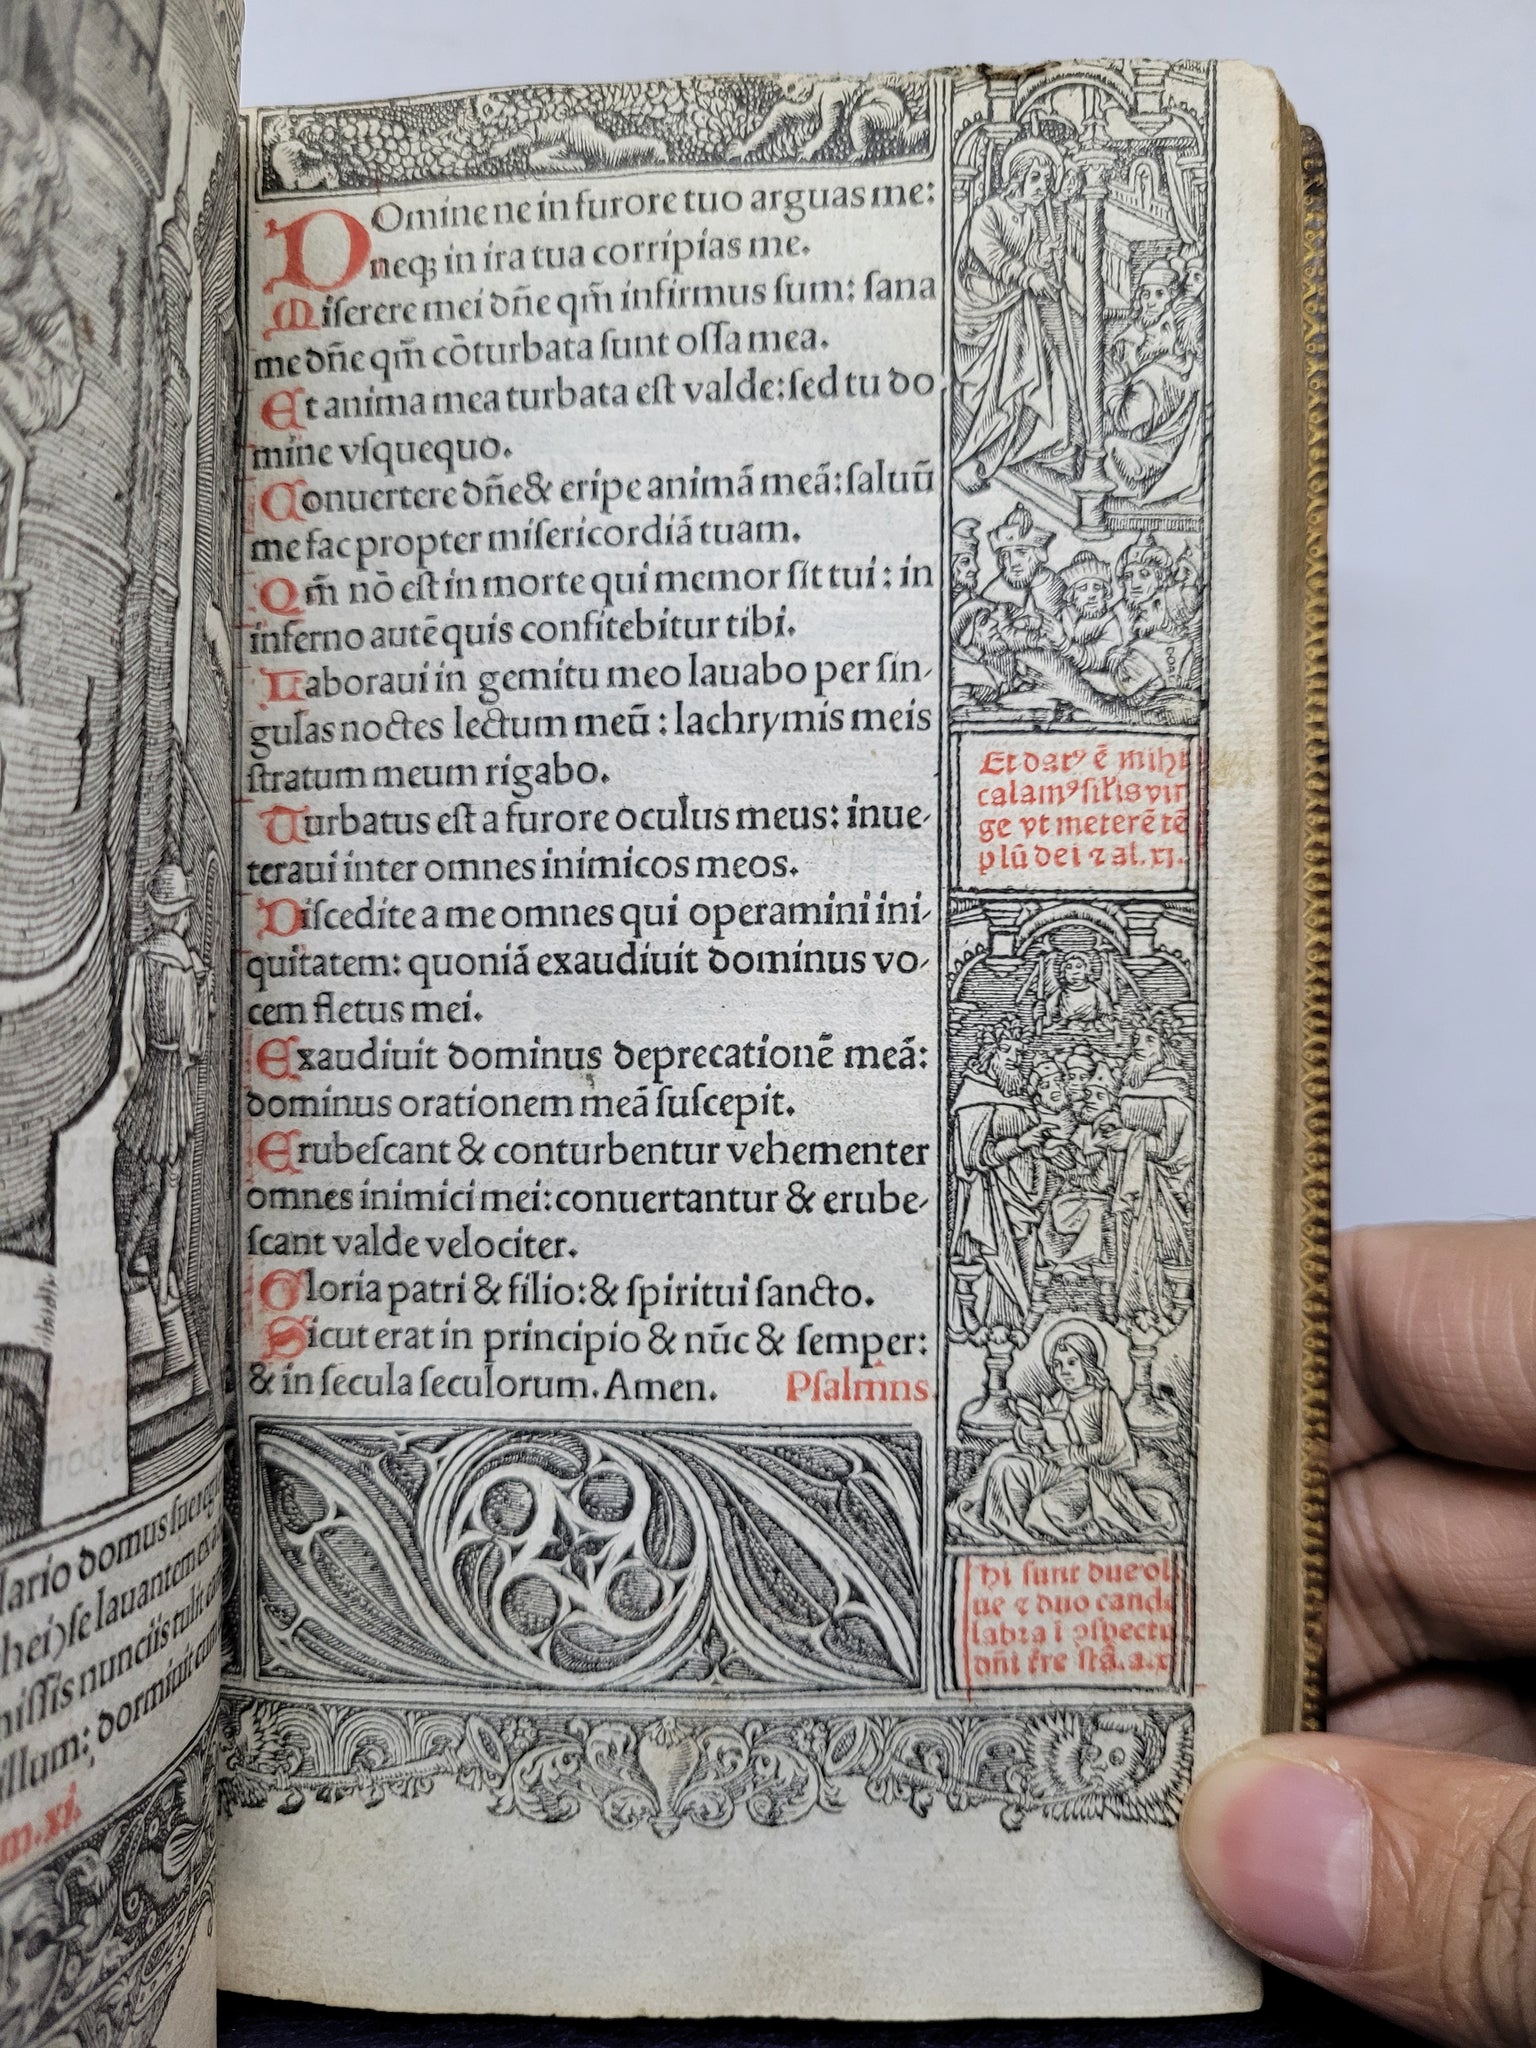 DOmine ne in furore tuo arguas me:
neq; in ira tua corripias me.
Miſerere mei dñe qm̃ infirmus ſum: ſana
me dñe qm̃ cõturbata ſunt oſſa mea.
Et anima mea turbata eſt valde: ſed tu do
mine vſquequo.
Conuertere dñe & eripe animã meã: ſaluũ
me fac propter miſericordiã tuam.
Qm̃ nõ eſt in morte qui memor ſit tui: in
inferno autẽ quis confitebitur tibi.
Laboraui in gemitu meo lauabo per ſin-
gulas noctes lectum meũ: lachrymis meis
ſtratum meum rigabo.
Turbatus eſt a furore oculus meus: inue-
teraui inter omnes inimicos meos.
Diſcedite a me omnes qui operamini ini-
quitatem: quoniã exaudiuit dominus vo-
cem fletus mei.
Exaudiuit dominus deprecationẽ meã:
dominus orationem meã ſuſcepit.
Erubeſcant & conturbentur vehementer
omnes inimici mei: conuertantur & erube-
ſcant valde velociter.
Gloria patri & filio: & ſpiritui ſancto.
Sicut erat in principio & nũc & ſemper:
& in ſecula ſeculorum. Amen. Pſalmns
Et datꝰ ẽ mihi
calamꝰ ſil'is vir
ge vt meterẽ tẽ
plũ dei ⁊ al. xj.
Hi ſunt due ol
ue ⁊ duo cande
labra i ꝯſpectu
dñi tr̃e ſtã. a. x
lario domus ſue reg
hei) ſe lauantem ex
miſſis nunciis tulit
illum: dormiuit cum
m. xi.